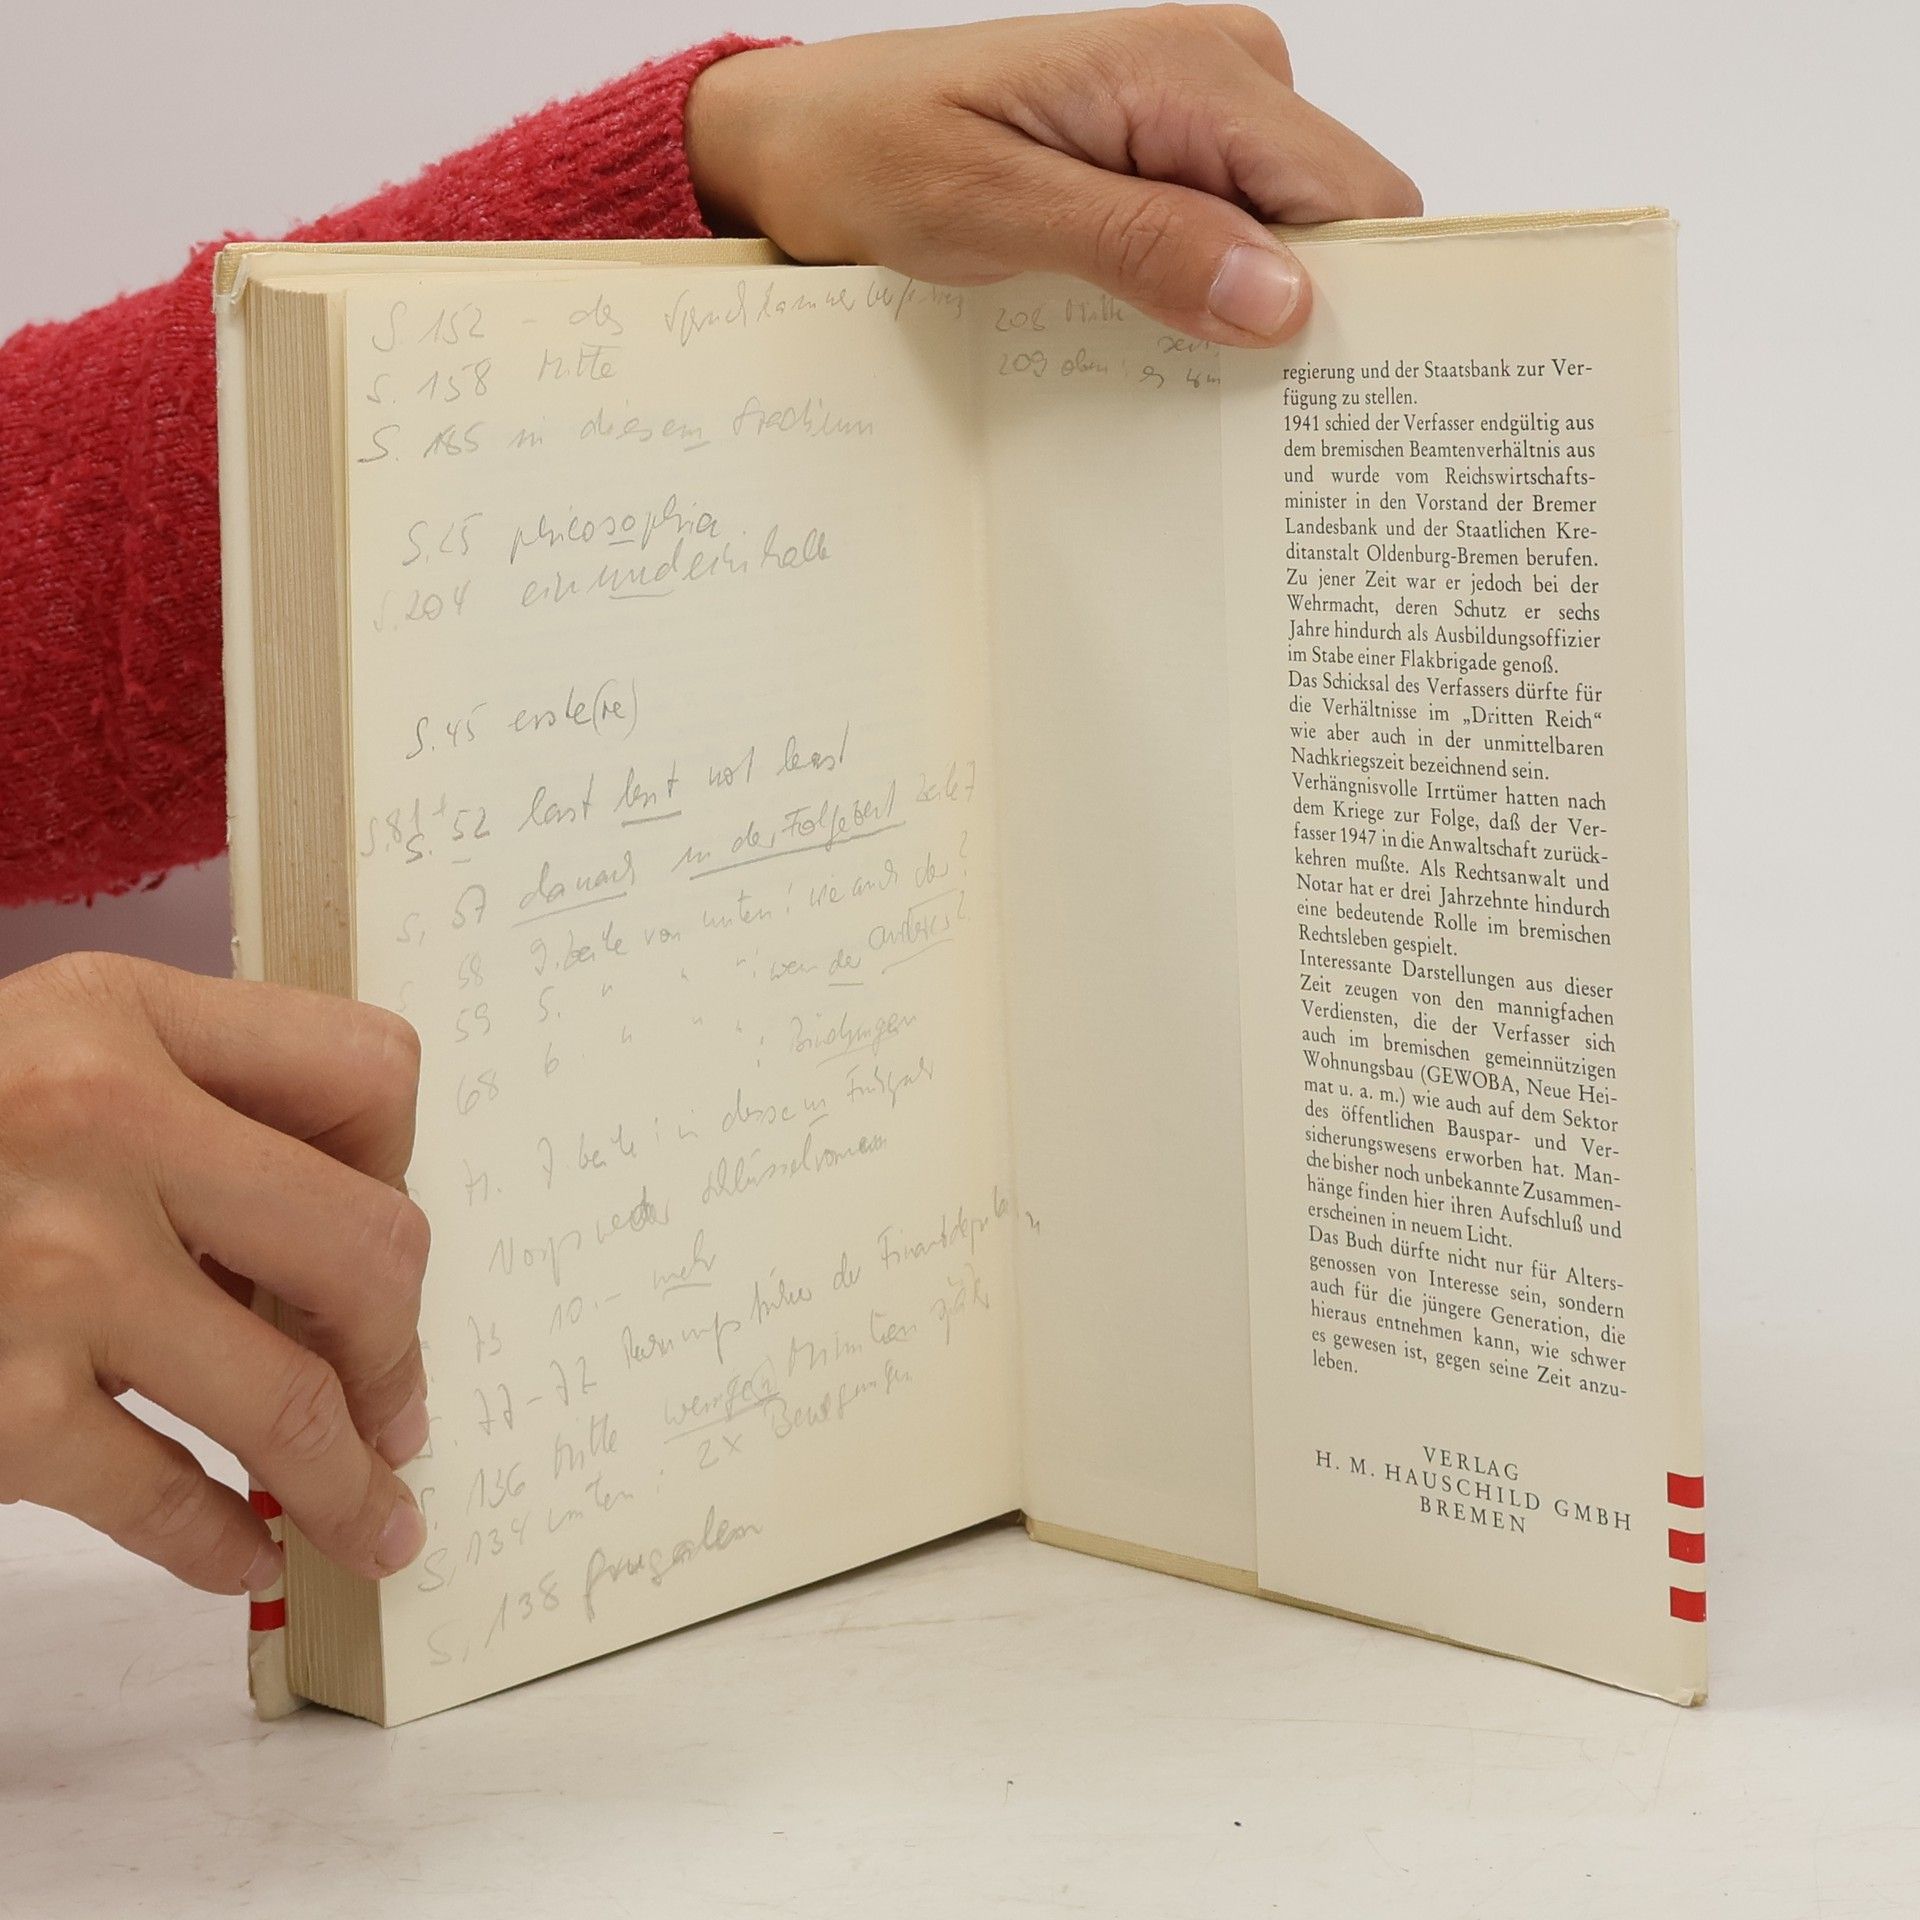 S. 152 - des
S. 158 Mitte
S. 165 in diesem Stadium
S. 25 philosophia
S. 204 ein und ein halb
S. 45 erste(re)
S. 81 + S. 52 last but not least
S. 57 danach in der Folgezeit Zeile 7
58 9. Zeile von unten: wie auch der?
59 5. " " ": wem der anderes?
68 6. " " " : Bindungen
71. 7. Zeile: in dessem
Schlüsselroman
73 10.- mehr
S. 77-72 der
S. 136 Mitte wenige(n) Minuten später
S. 134 unten: 2x Bewegungen
S. 138 frugalem
208 Mitte
209 oben: es
regierung und der Staatsbank zur Ver-
fügung zu stellen.
1941 schied der Verfasser endgültig aus
dem bremischen Beamtenverhältnis aus
und wurde vom Reichswirtschafts-
minister in den Vorstand der Bremer
Landesbank und der Staatlichen Kre-
ditanstalt Oldenburg-Bremen berufen.
Zu jener Zeit war er jedoch bei der
Wehrmacht, deren Schutz er sechs
Jahre hindurch als Ausbildungsoffizier
im Stabe einer Flakbrigade genoß.
Das Schicksal des Verfassers dürfte für
die Verhältnisse im „Dritten Reich“
wie aber auch in der unmittelbaren
Nachkriegszeit bezeichnend sein.
Verhängnisvolle Irrtümer hatten nach
dem Kriege zur Folge, daß der Ver-
fasser 1947 in die Anwaltschaft zurück-
kehren mußte. Als Rechtsanwalt und
Notar hat er drei Jahrzehnte hindurch
eine bedeutende Rolle im bremischen
Rechtsleben gespielt.
Interessante Darstellungen aus dieser
Zeit zeugen von den mannigfachen
Verdiensten, die der Verfasser sich
auch im bremischen gemeinnützigen
Wohnungsbau (GEWOBA, Neue Hei-
mat u. a. m.) wie auch auf dem Sektor
des öffentlichen Bauspar- und Ver-
sicherungswesens erworben hat. Man-
che bisher noch unbekannte Zusammen-
hänge finden hier ihren Aufschluß und
erscheinen in neuem Licht.
Das Buch dürfte nicht nur für Alters-
genossen von Interesse sein, sondern
auch für die jüngere Generation, die
hieraus entnehmen kann, wie schwer
es gewesen ist, gegen seine Zeit anzu-
leben.
VERLAG
H. M. HAUSCHILD GMBH
BREMEN